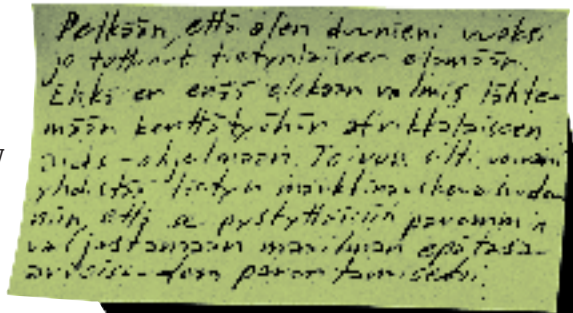 Pelkään, että olen duunieni vuoksi
jo tottunut tietynlaiseen elämään.
Ehkä en enää olekaan valmis lähte-
mään kenttätyöhön afrikkalaiseen
aids-ohjelmaan. Toivon silti voivani
yhdistää tietyn markkinauskovaisuuden
niin, että se pystyttäisiin paremmin
valjastamaan maailman epätasa-
arvoisuuden parantamiseksi.